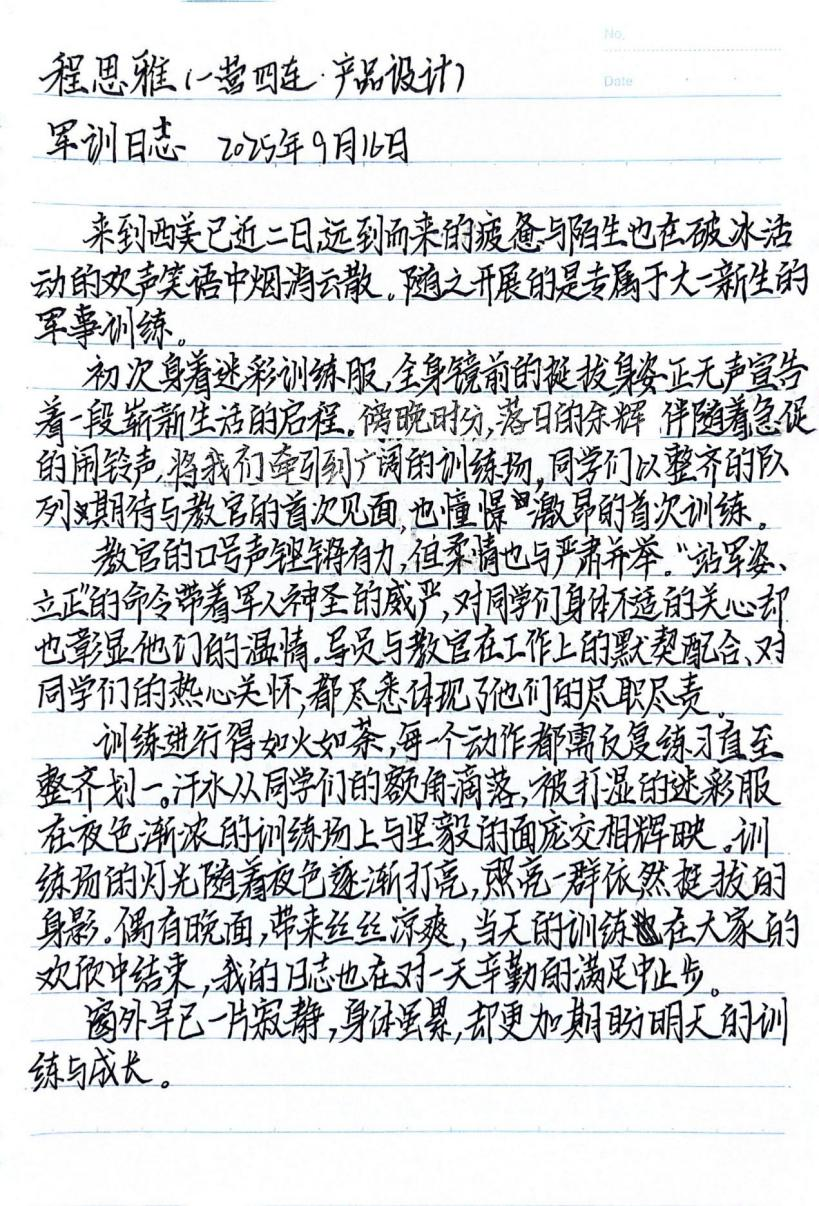 No.
Date
程思雅(一营四连·产品设计)
军训日志 2025年9月16日
来到西美已近二日,远到而来的疲惫与陌生也在破冰活
动的欢声笑语中烟消云散。随之开展的是专属于大一新生的
军事训练。
初次身着迷彩训练服,全身镜前的挺拔身姿正无声宣告
着一段崭新生活的启程。傍晚时分,落日的余辉伴随着急促
的闹铃声,将我们牵引到广阔的训练场,同学们以整齐的队
列期待与教官的首次见面,也憧憬激昂的首次训练。
教官的口号声铿锵有力,但柔情也与严肃并举。“站军姿、
立正”的命令带着军人神圣的威严,对同学们身体不适的关心却
也彰显他们的温情。导员与教官在工作上的默契配合、对
同学们的热心关怀,都尽悉体现了他们的尽职尽责。
训练进行得如火如荼,每一个动作都需反复练习直至
整齐划一。汗水从同学们的额角滴落,被打湿的迷彩服
在夜色渐浓的训练场上与坚毅的面庞交相辉映。训
练场的灯光随着夜色逐渐打亮,照亮一群依然挺拔的
身影。偶有晚面,带来丝丝凉爽,当天的训练也在大家的
欢欣中结束,我的日志也在对一天辛勤的满足中止步。
窗外早已一片寂静,身体虽累,却更加期盼明天的训
练与成长。